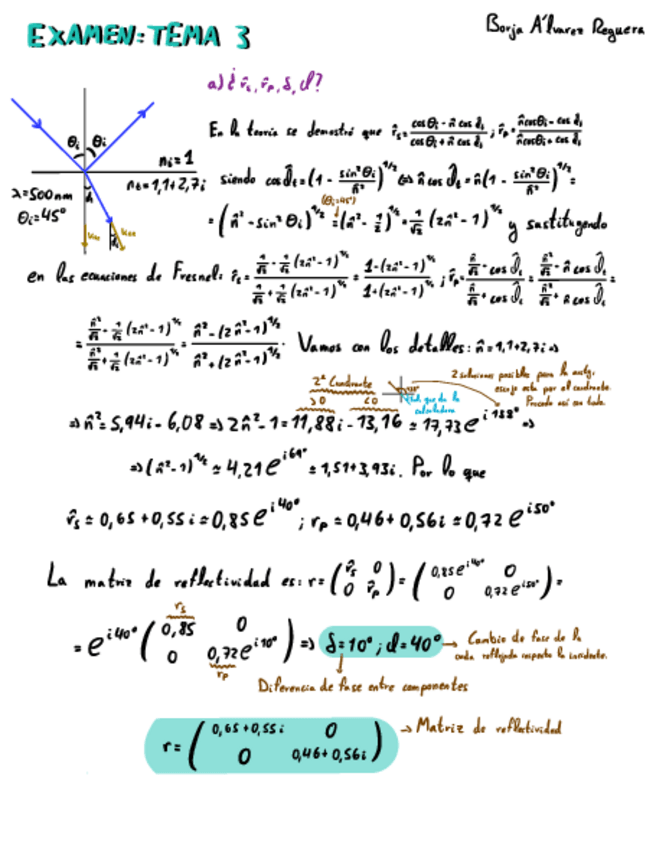 EXAMEN: TEMA 3
Borja Álvarez Reguera
a) ¿ r̂s, r̂p, δ, d?
θi θi
ni = 1
nt = 1,1+2,7i
λ=500nm
θi=45°
En la teoría se demostró que r̂s = (cosθi - n̂ cos ϑ̂t)/(cosθi + n̂ cos ϑ̂t) ; r̂p = (n̂cosθi - cos ϑ̂t)/(n̂cosθi + cos ϑ̂t)
siendo cos ϑ̂t = (1 - sin²θi/n̂²)^1/2 ⇔ n̂ cos ϑ̂t = n̂(1 - sin²θi/n̂²)^1/2 =
(θi=45°)
= (n̂² - sin²θi)^1/2 = (n̂² - 1/2)^1/2 = 1/√2 (2n̂² - 1)^1/2 y sustituyendo
en las ecuaciones de Fresnel: r̂s = (1/√2 - 1/√2 (2n̂² - 1)^1/2)/(1/√2 + 1/√2 (2n̂² - 1)^1/2) = (1-(2n̂²-1)^1/2)/(1+(2n̂²-1)^1/2) ; r̂p = (n̂/√2 - cos ϑ̂t)/(n̂/√2 + cos ϑ̂t) = (n̂²/√2 - n̂ cos ϑ̂t)/(n̂²/√2 + n̂ cos ϑ̂t) =
= (n̂²/√2 - 1/√2 (2n̂²-1)^1/2)/(n̂²/√2 + 1/√2 (2n̂²-1)^1/2) = (n̂² - (2n̂²-1)^1/2)/(n̂² + (2n̂²-1)^1/2). Vamos con los detalles: n̂ = 1,1+2,7i ⇒
2º Cuadrante
>0 <0
calculadora
2 soluciones posibles para la
escojo esta por el cuadrante.
Procedo así con todo.
⇒ n̂² = 5,94i - 6,08 ⇒ 2n̂² - 1 = 11,88i - 13,16 ≃ 17,73e^i138° ⇒
⇒ (n̂²-1)^1/2 ≃ 4,21e^i69° ≃ 1,51+3,93i. Por lo que
r̂s ≃ 0,65+0,55i ≃ 0,85e^i40° ; rp ≃ 0,46+0,56i ≃ 0,72e^i50°
La matriz de reflectividad es: r = (r̂s 0 0 r̂p) = (0,85e^i40° 0 0 0,72e^i50°) =
= e^i40° (0,85 0 0 0,72e^i10°) ⇒ δ=10° ; d=40° → Cambio de fase de la
rs
rp
onda reflejada respecto la incidente.
Diferencia de fase entre componentes
r = (0,65+0,55i 0 0 0,46+0,56i) → Matriz de reflectividad